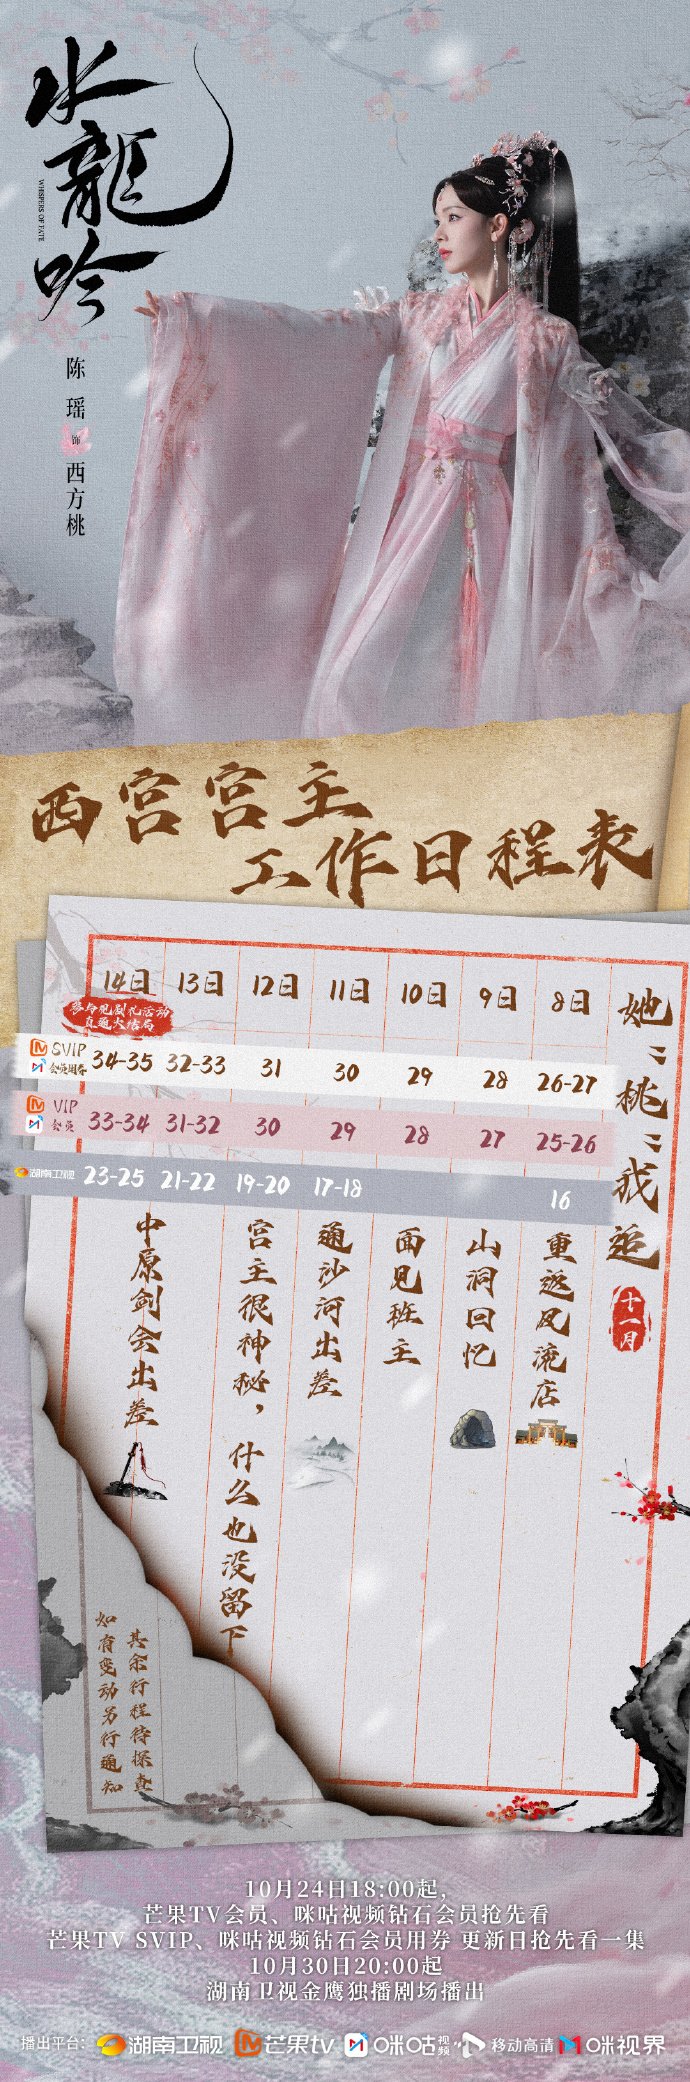 水龍吟
WHISPERS OF FATE
陈瑶
饰
西方桃
西宫宫主
工作日程表
她桃我追
十一月
14日 13日 12日 11日 10日 9日 8日
参与见剧礼活动
直通大结局
SVIP
会员用券
34-35 32-33 31 30 29 28 26-27
VIP
会员
33-34 31-32 30 29 28 27 25-26
湖南卫视
23-25 21-22 19-20 17-18 16
重返风流店
山洞回忆
面见班主
通沙河出差
宫主很神秘，什么也没留下
中原剑会出差
其余行程待探查
如有变动另行通知
10月24日18:00起，
芒果TV会员、咪咕视频钻石会员抢先看
芒果TV SVIP、咪咕视频钻石会员用券 更新日抢先看一集
10月30日20:00起
湖南卫视金鹰独播剧场播出
播出平台： 湖南卫视 芒果tv 咪咕视频 移动高清 咪视界